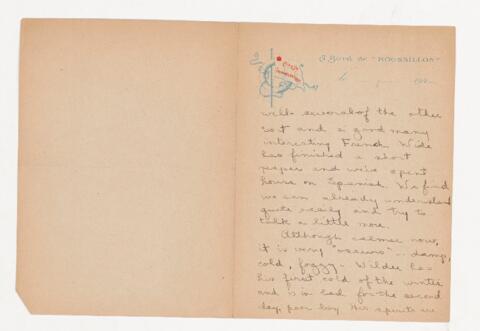 A Bord de "ROUSSILLON"
le 192
with several of the other
sort and a good many
interesting French. Wide
has finished a short
paper and we've spent
hours on Spanish. We find
we can already understand
quite easily and try to
talk a little more.
Although calmer now,
it is very "oscuro" - damp,
cold, foggy - Wilder has
his first cold of the winter
and is in bed for the second
day, poor boy. His spirits are